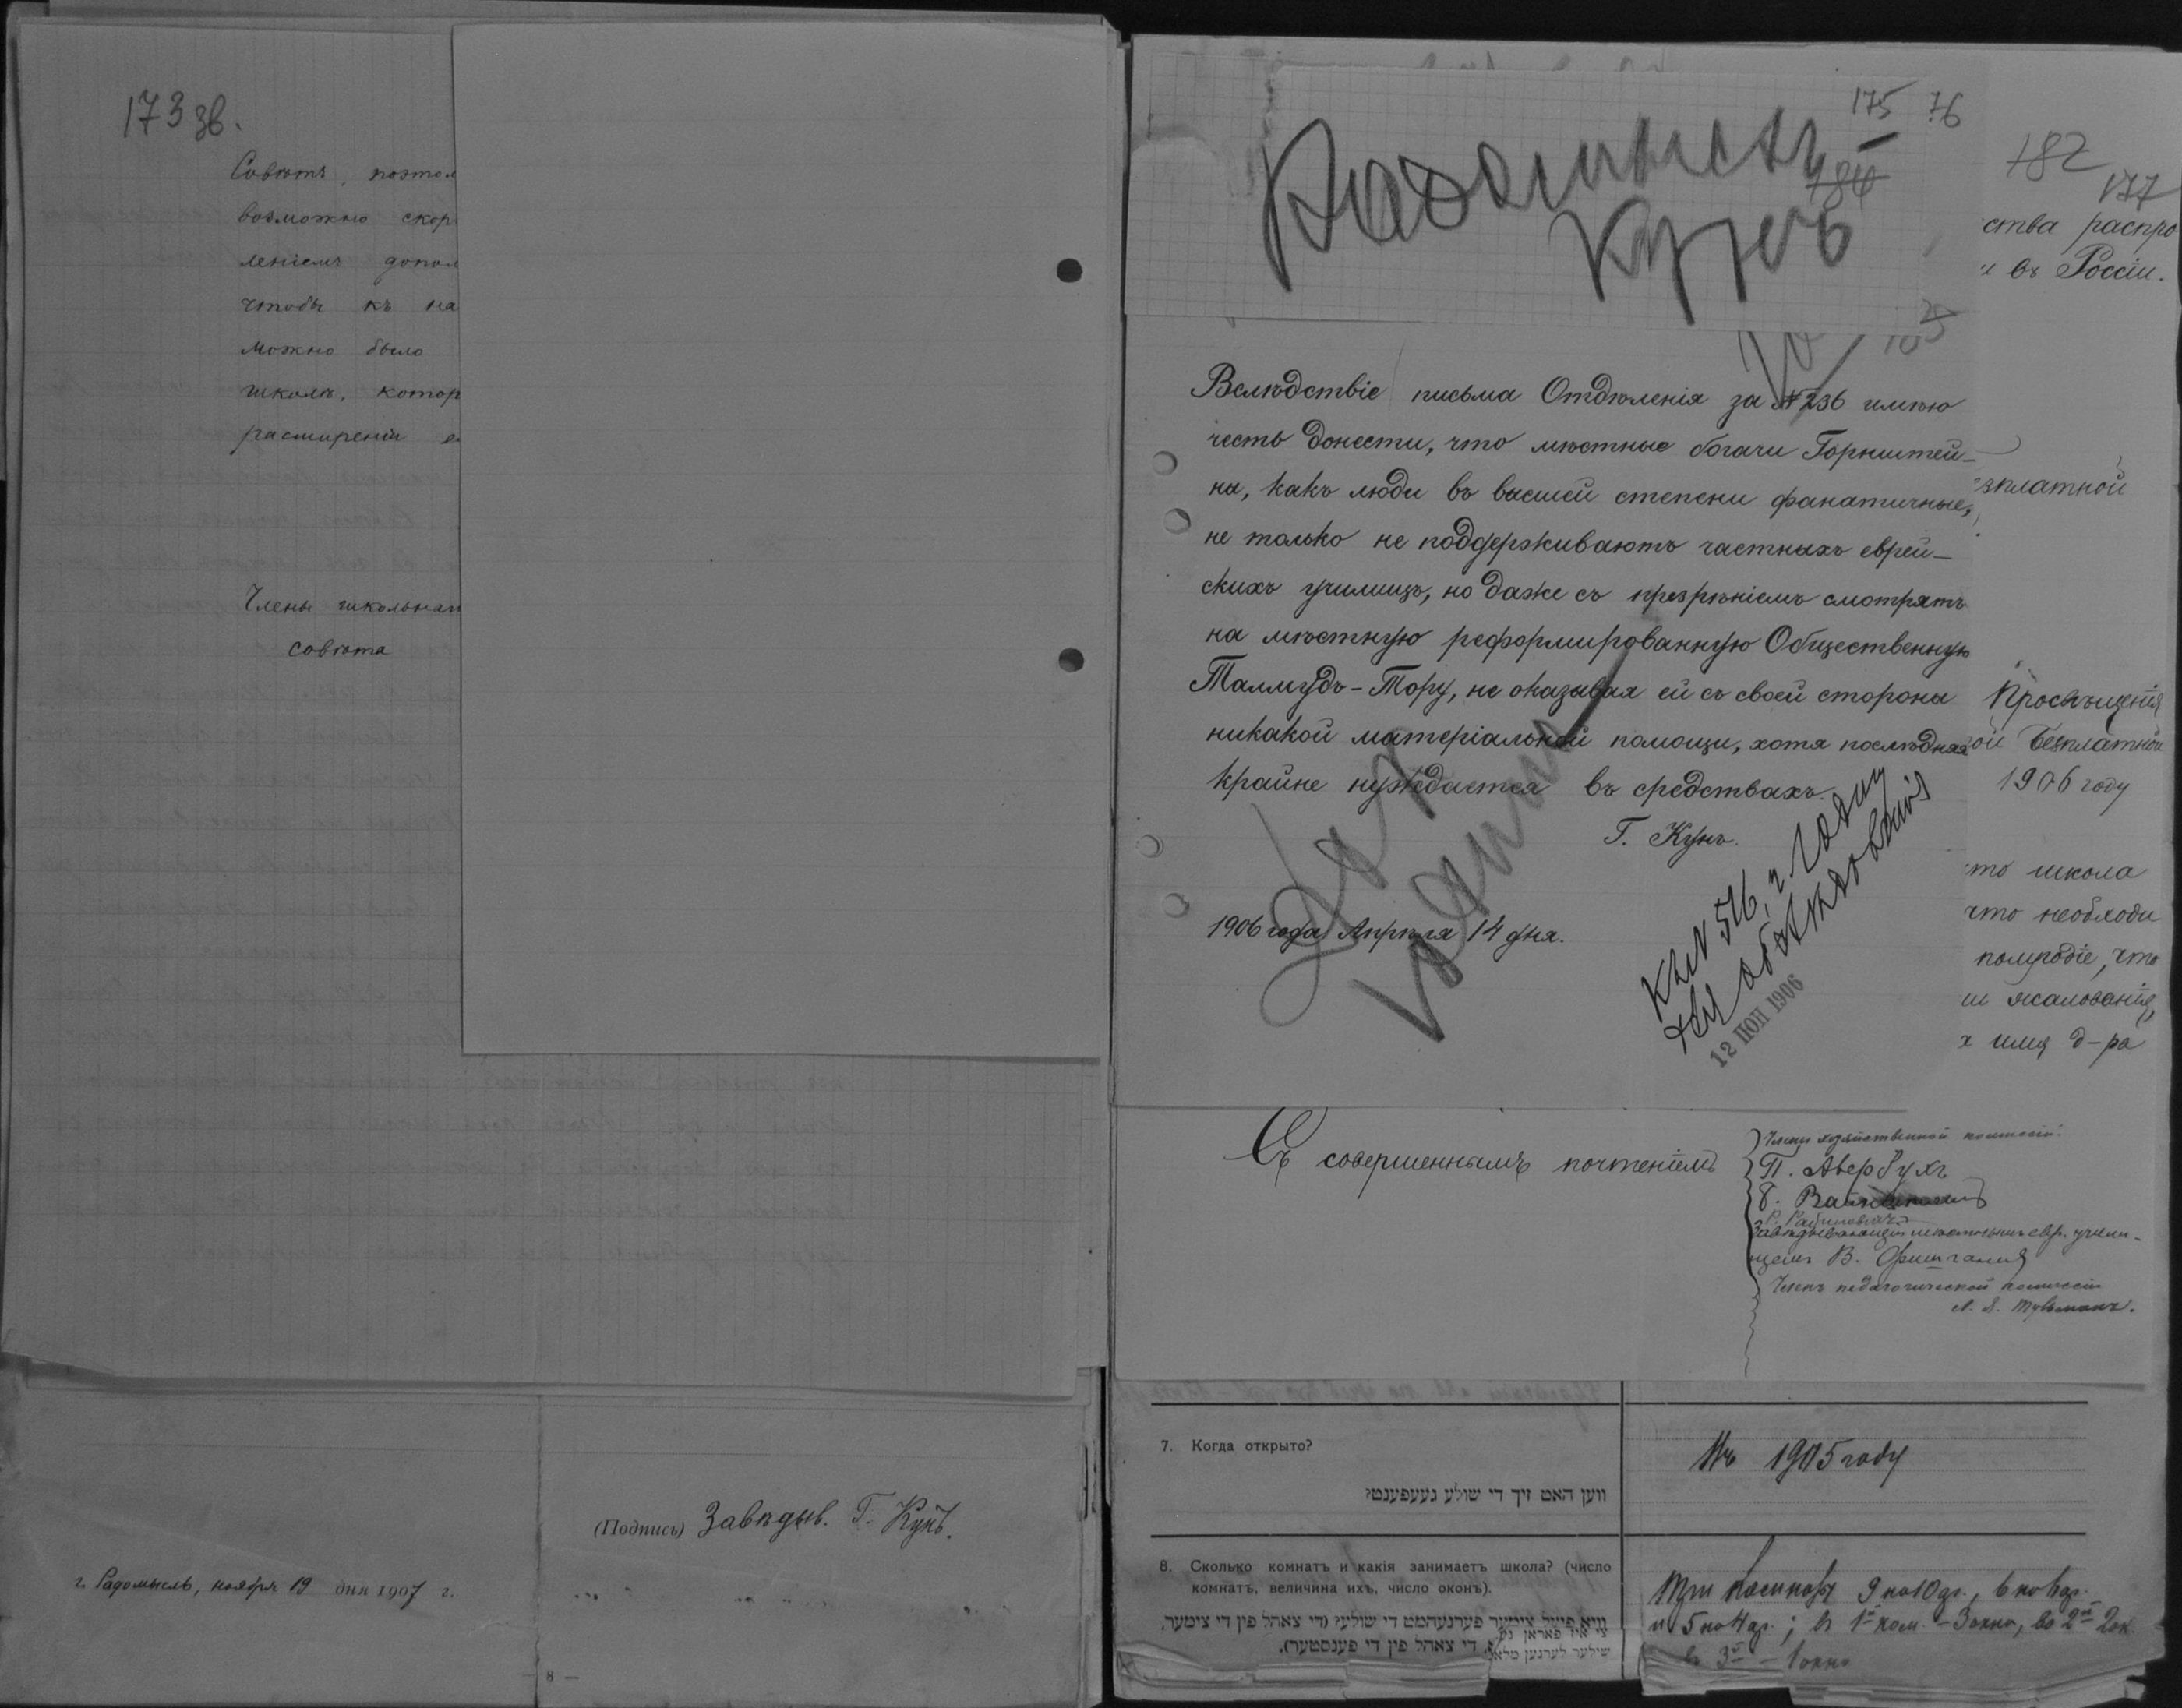 173 зв.
Совѣтъ, поэтом
возможно скор
леніемъ допол
чтобы къ на
можно было
школѣ, котор
расширеніи е
Члены школьнаго
совѣта
г. Радомысль, ноября 19 дня 1907 г.
(Подпись) Завѣдыв. Г. Кунъ.
8 —
175 76
Радомысль
184
Кунъ
Вслѣдствіе письма Отдѣленія за № 236 имѣю
честь донести, что мѣстные богачи Горнштей-
ны, какъ люди въ высшей степени фанатичные,
не только не поддерживаютъ частныхъ еврей-
скихъ училищъ, но даже съ презрѣніемъ смотрятъ
на мѣстную реформированную Общественную
Талмудъ-Тору, не оказывая ей съ своей стороны
никакой матеріальной помощи, хотя послѣдняя
крайне нуждается въ средствахъ.
Г. Кунъ.
1906 года Апрѣля 14 дня.
12 1906
182
177
ства распро
и въ Россіи.
зплатной
Просвѣщенія
ой Безплатной
1906 году
что школа
что необходи
полугодіе, что
и жалованія,
х имя д-ра
Съ совершеннымъ почтеніемъ
Члены хозяйственной комиссіи:
П. Авербухъ
Р. Рабиновичъ
Завѣдывающій мѣстнымъ евр. учили-
щемъ В. Фишманъ
Членъ педагогической комиссіи
7. Когда открыто?
ווען האט זיך די שולע געעפענט?
Въ 1905 году
8. Сколько комнатъ и какія занимаетъ школа? (число
комнатъ, величина ихъ, число оконъ).
וויא פיעל צימער פערנעהמט די שולע? (די צאהל פין די צימער,
די צאהל פין די פענסטער).
Три комнаты 9 на 10 ар., 6 на 6 ар.
и 5 на 4 ар.; въ 1й ком. – 3 окна, во 2й 2 ок.
въ 3й – 1 окно